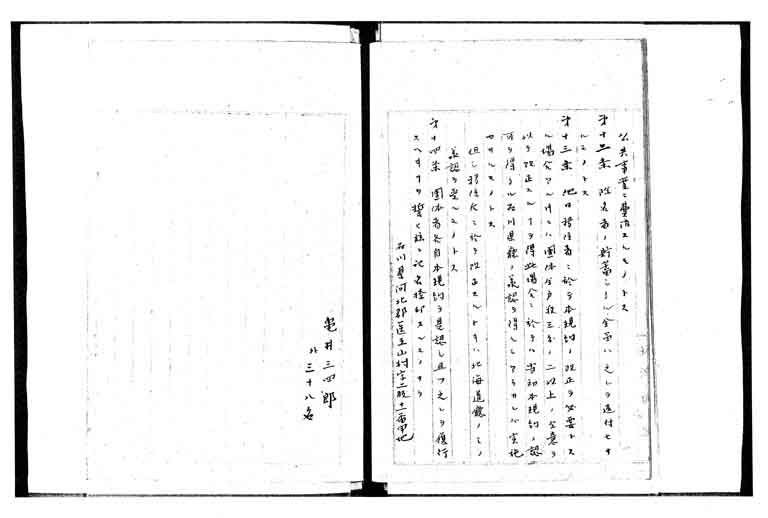 公共事業ニ費消スルモノトス
第十二条 除名者ノ貯蓄シタル金品ハ之レヲ還付セサ
ルモノトス
第十三条 他日移住者ニ於テ本規約ノ改正ヲ必要トス
ル場合アルトキハ團体全戸数三分ノ二以上ノ同意ヲ
以テ改正スルヲ得此場合ニ於テハ当初本規約ノ認
可ヲ得タル石川県廳ノ承認ヲ得ルニアラサレバ実施
セサルモノトス
但し移住后ニ於テ改正スルトキハ北海道廳ノミノ
承認ヲ受ルモノトス
第十四条 團体者各自本規約ヲ是認シ且ツ之レヲ履行
スヘキヿヲ誓ヒ茲ニ記名捺印スルモノナリ
石川県河北郡医王山村字二俣
亀井三四郎
外三十八名